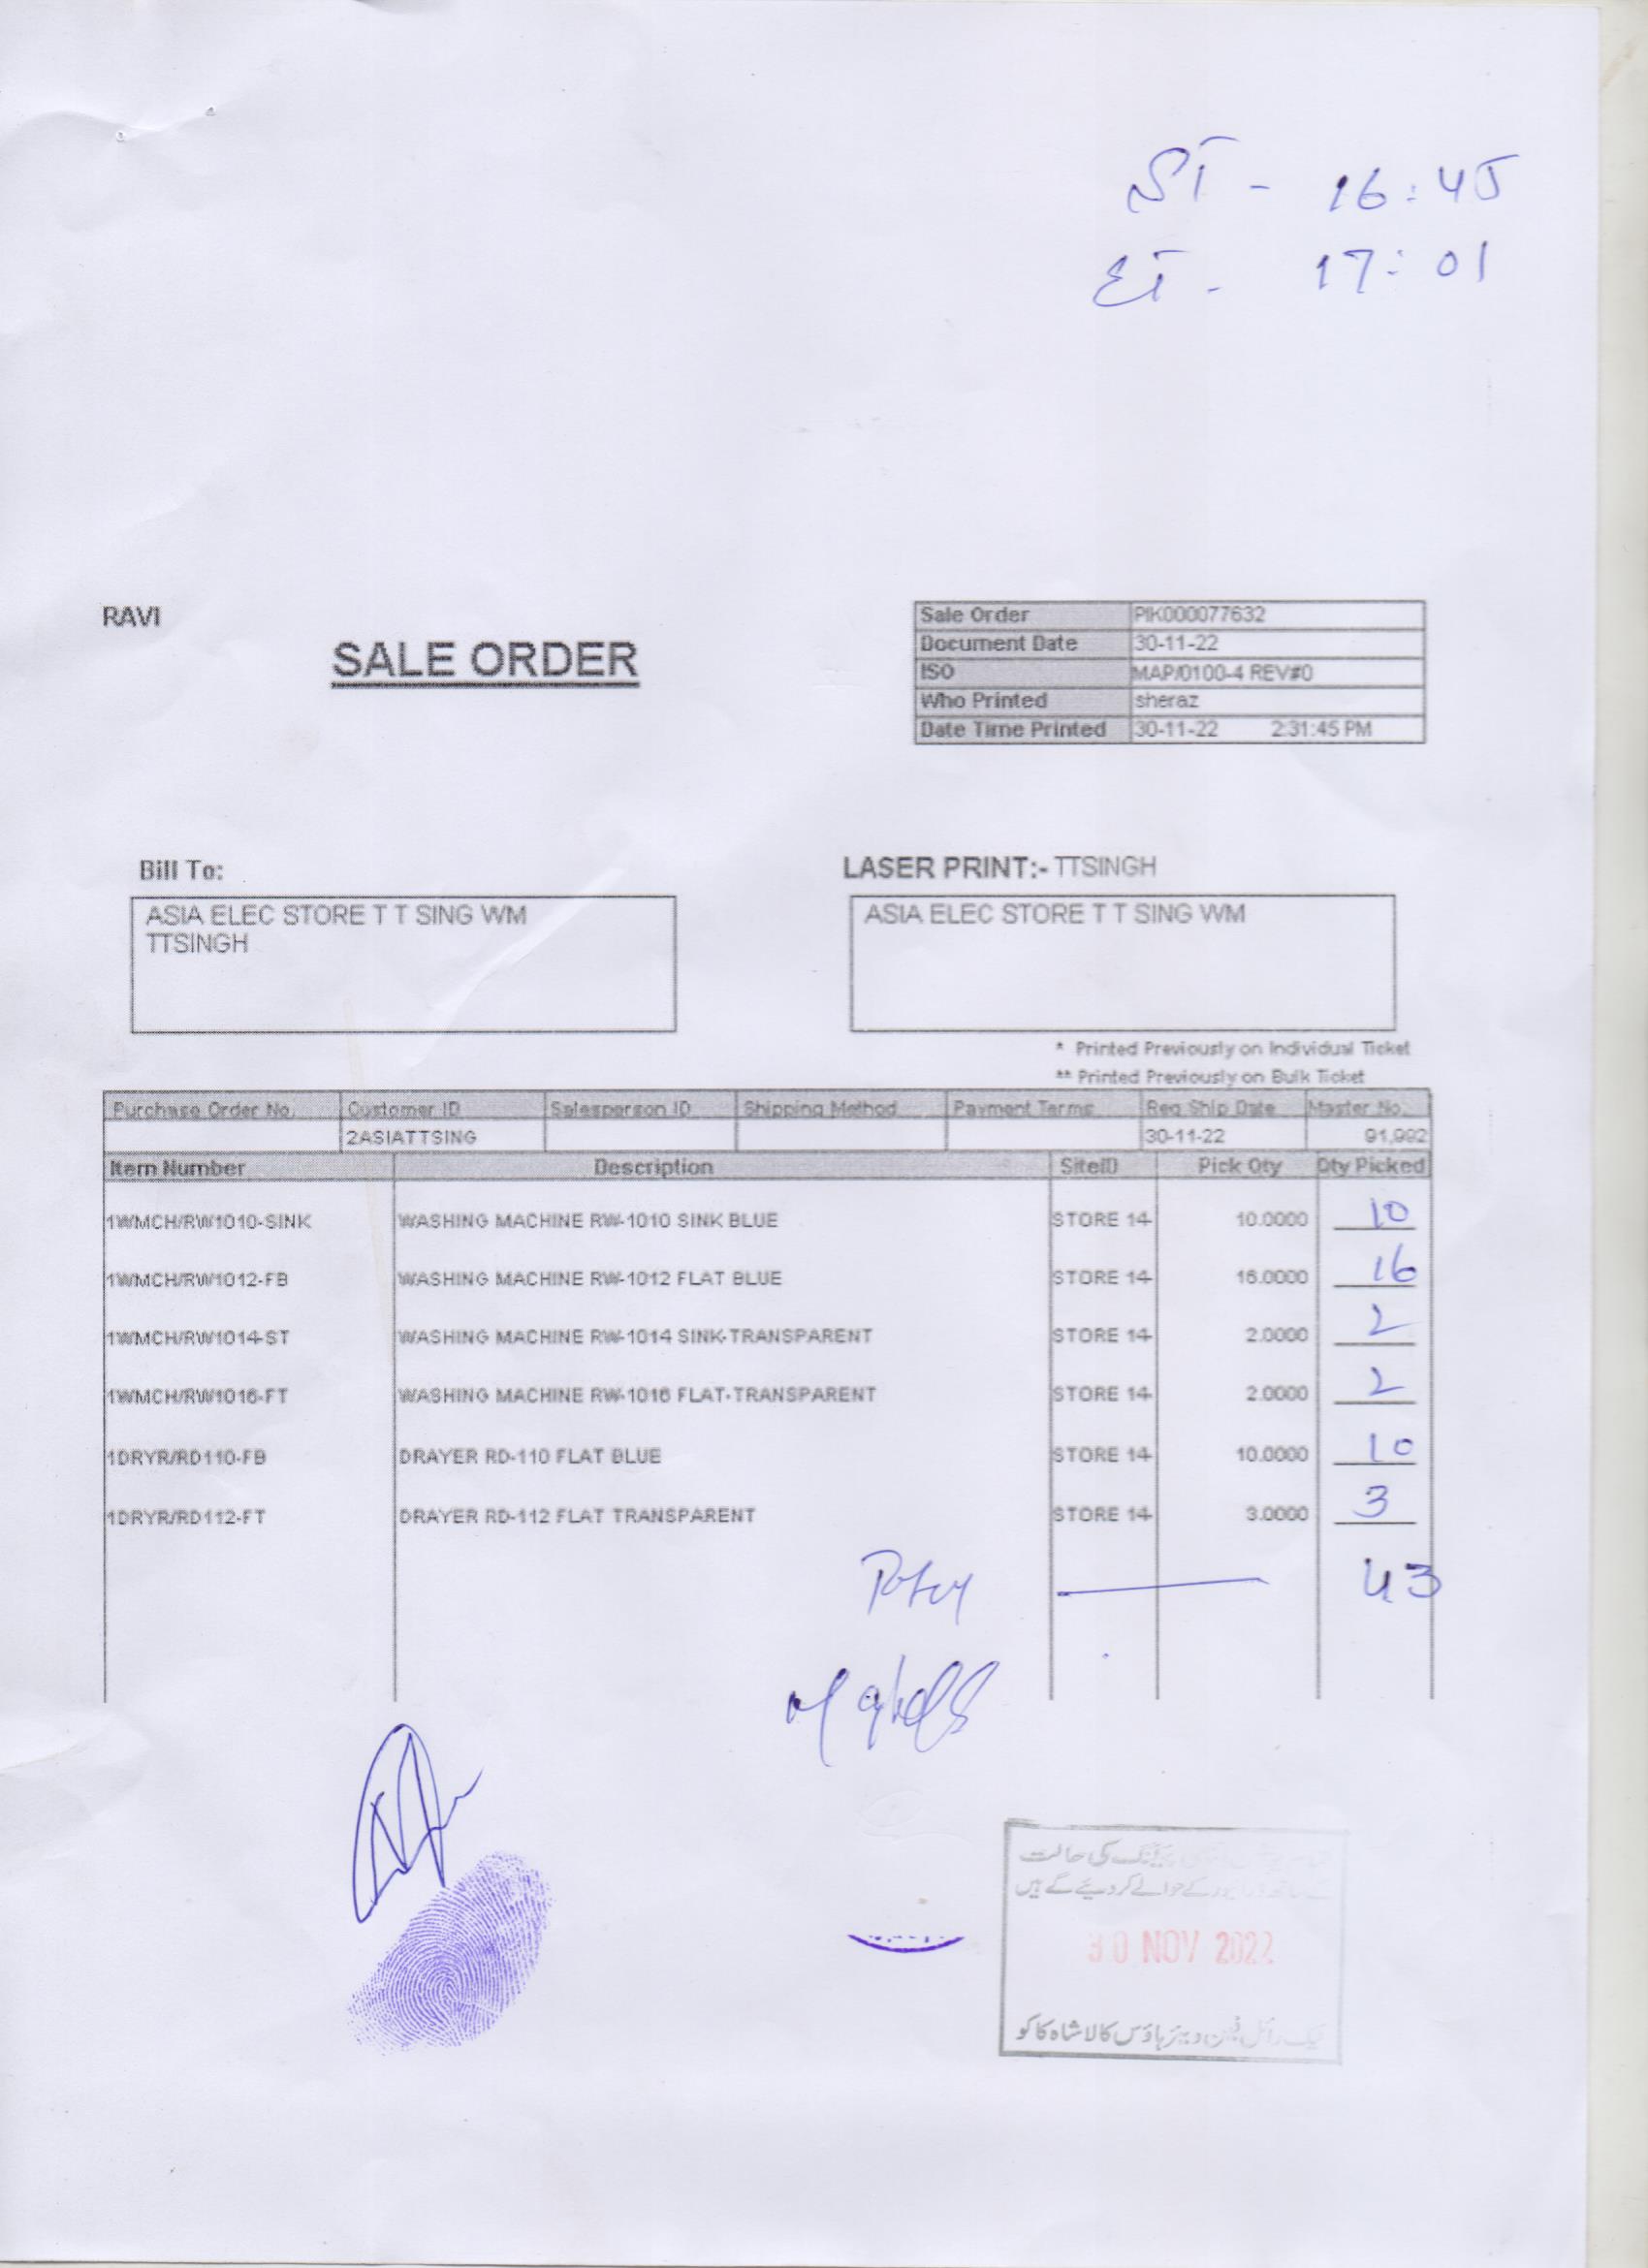 ST - 16:45
ET - 17:01
RAVI
SALE ORDER
Sale Order PIK000077632
Document Date 30-11-22
ISO MAP/0100-4 REV#0
Who Printed sheraz
Date Time Printed 30-11-22 2:31:45 PM
Bill To:
ASIA ELEC STORE T T SING WM
TTSINGH
LASER PRINT:- TTSINGH
ASIA ELEC STORE T T SING WM
* Printed Previously on Individual Ticket
** Printed Previously on Bulk Ticket
Purchase Order No. Customer ID Salesperson ID Shipping Method Payment Terms Req Ship Date Master No.
2ASIATTSING 30-11-22 91,992
Item Number Description SiteID Pick Qty Qty Picked
1WMCH/RW1010-SINK WASHING MACHINE RW-1010 SINK BLUE STORE 14 10.0000 10
1WMCH/RW1012-FB WASHING MACHINE RW-1012 FLAT BLUE STORE 14 16.0000 16
1WMCH/RW1014-ST WASHING MACHINE RW-1014 SINK-TRANSPARENT STORE 14 2.0000 2
1WMCH/RW1016-FT WASHING MACHINE RW-1016 FLAT-TRANSPARENT STORE 14 2.0000 2
1DRYR/RD110-FB DRAYER RD-110 FLAT BLUE STORE 14 10.0000 10
1DRYR/RD112-FT DRAYER RD-112 FLAT TRANSPARENT STORE 14 3.0000 3
43
کی حالت
کے حوالے کر دیئے گے ہیں
30 NOV 2022
ویئر ہاؤس کالا شاہ کاکو